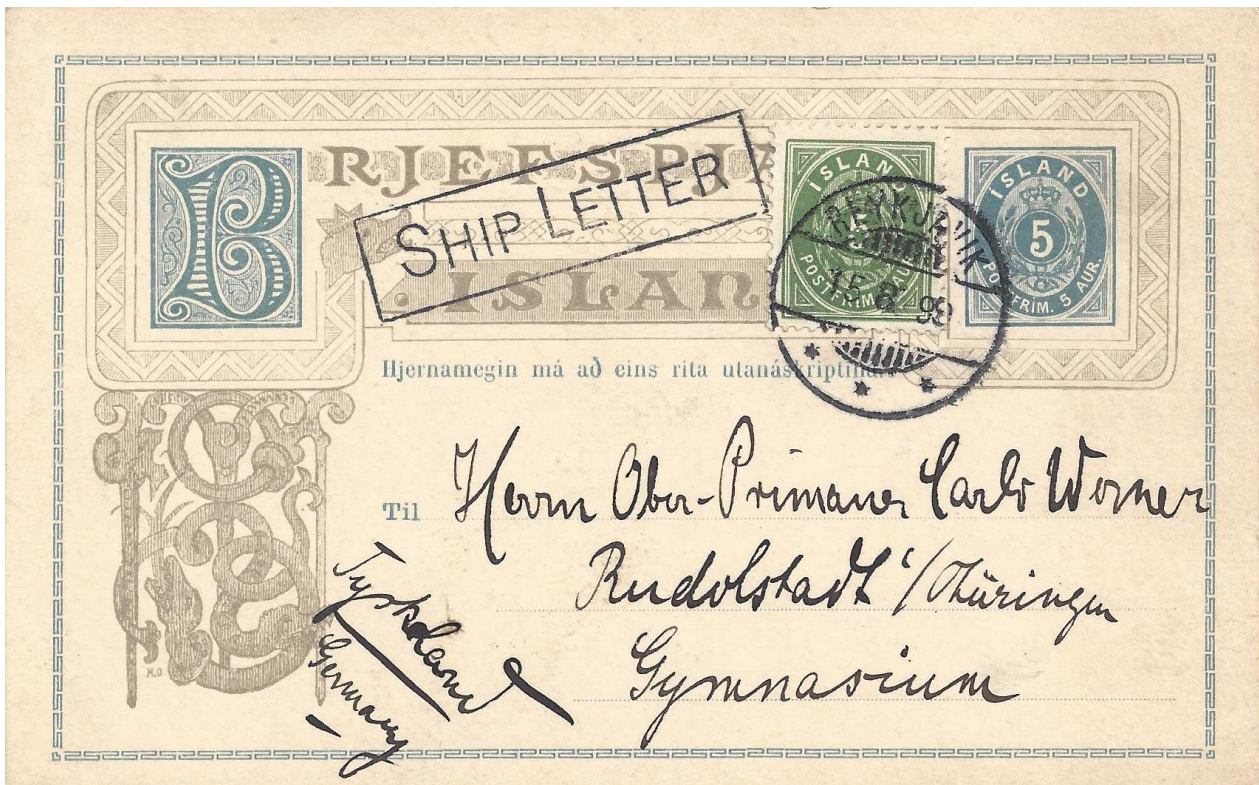 BRJEFSPJA
SHIP LETTER
ISLAN
ISLAND
POSTFRIM
ISLAND
5
POSTFRIM. 5 AUR.
REYKJAVIK
15.8.99
Hjernamegin má að eins rita utanáskriptina
Til Herrn Ober-Primaner Carl Werner
Rudolstadt i/Thüringen
Gymnasium
Tyskland
Germany